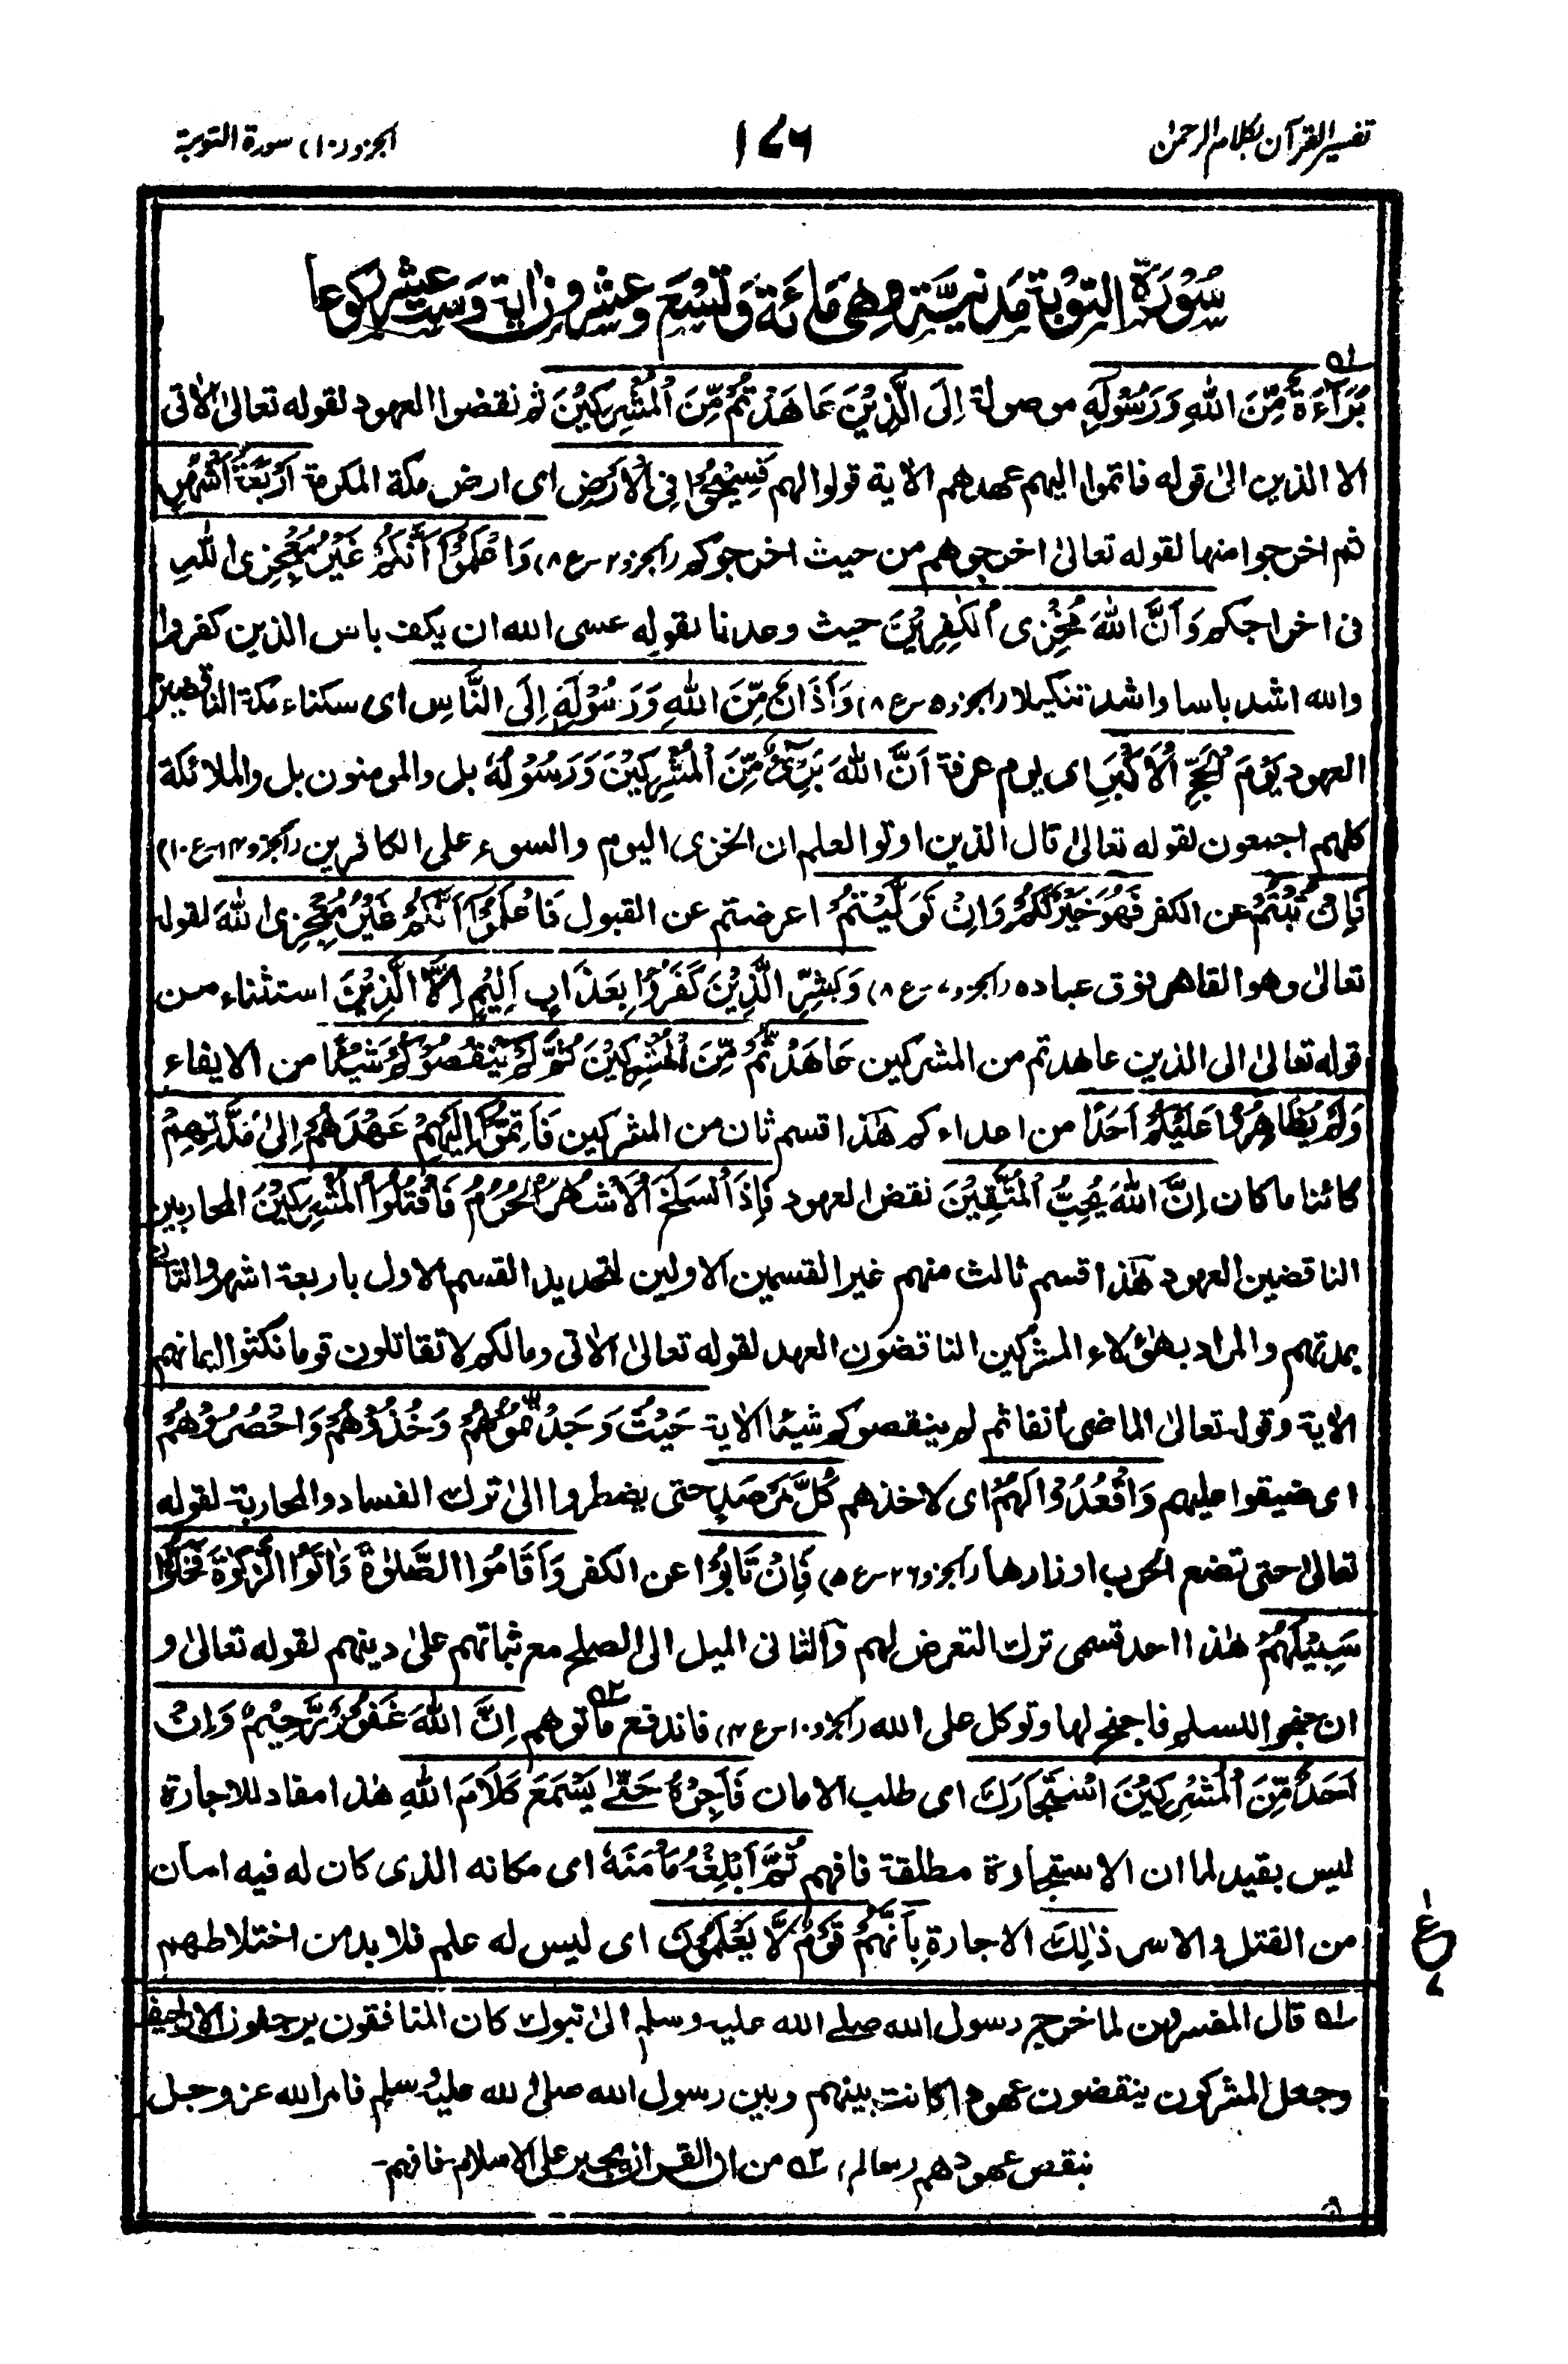 تفسیر القرآن بکلام الرحمن
١٧٦
الجزو (١٠) سورة التوبة
سُوْرَةُ التَّوْبَةِ مَدَنِيَّةٌ وَهِىَ مَائَةٌ وَتِسْعٌ وَعِشْرُوْنَ اٰيَةً وَسِتَّ عَشَرَ رُكُوْعًا
بَرَآءَةٌ مِّنَ اللهِ وَرَسُوْلِهٖ موصولة اِلَى الَّذِيْنَ عَاهَدْتُّمْ مِّنَ الْمُشْرِكِيْنَ ثم نقضوا العهود لقوله تعالىٰ الاٰتى
الا الذين الىٰ قوله فاتموا اليهم عهدهم الاٰية قولوا لهم فَسِيْحُوْا فِى الْاَرْضِ اى ارض مكة المكرمة اَرْبَعَةَ اَشْهُرٍ
ثم اخرجوا منها لقوله تعالىٰ اخرجوهم من حيث اخرجوكم (الجزو٢-ع٨) وَاعْلَمُوْٓا اَنَّكُمْ غَيْرُ مُعْجِزِى اللهِ
فى اخراجكم وَاَنَّ اللهَ مُخْزِى الْكٰفِرِيْنَ حيث وعدنا بقوله عسى الله ان يكف باس الذين كفروا
والله اشد باسا واشد تنكيلا (الجزو٥-ع٨) وَاَذَانٌ مِّنَ اللهِ وَرَسُوْلِهٖٓ اِلَى النَّاسِ اى سكناء مكة الناقضين
العهود يَوْمَ الْحَجِّ الْاَكْبَرِ اى يوم عرفة اَنَّ اللهَ بَرِىْٓءٌ مِّنَ الْمُشْرِكِيْنَ وَرَسُوْلُهٗ بل والمومنون بل والملائكة
كلهم اجمعون لقوله تعالىٰ قال الذين اوتوا العلم ان الخزى اليوم والسوء على الكافرين (الجزو١٤-ع١٠)
فَاِنْ تُبْتُمْ عن الكفر فَهُوَ خَيْرٌ لَّكُمْ وَاِنْ تَوَلَّيْتُمْ اعرضتم عن القبول فَاعْلَمُوْٓا اَنَّكُمْ غَيْرُ مُعْجِزِى اللهِ لقوله
تعالىٰ وهو القاهر فوق عباده (الجزو٧-ع٨) وَبَشِّرِ الَّذِيْنَ كَفَرُوْا بِعَذَابٍ اَلِيْمٍ اِلَّا الَّذِيْنَ استثناء من
قوله تعالىٰ الى الذين عاهدتم من المشركين عَاهَدْتُّمْ مِّنَ الْمُشْرِكِيْنَ ثُمَّ لَمْ يَنْقُصُوْكُمْ شَيْئًا من الايفاء
وَلَمْ يُظَاهِرُوْا عَلَيْكُمْ اَحَدًا من اعداءكم هٰذا قسم ثان من المشركين فَاَتِمُّوْٓا اِلَيْهِمْ عَهْدَهُمْ اِلىٰ مُدَّتِهِمْ
كائنا ما كان اِنَّ اللهَ يُحِبُّ الْمُتَّقِيْنَ نقض العهود فَاِذَا انْسَلَخَ الْاَشْهُرُ الْحُرُمُ فَاقْتُلُوا الْمُشْرِكِيْنَ المحاربين
الناقضين العهود هٰذا قسم ثالث منهم غير القسمين الاولين لتحديد القسم الاول باربعة اشهر والثانى
بمدتهم والمراد بهٰؤلاء المشركين الناقضون العهد لقوله تعالىٰ الاٰتى ومالكم لا تقاتلون قوما نكثوا ايمانهم
الاٰية وقوله تعالىٰ الماضى اٰنفا ثم لم ينقصوكم شيئا الاٰية حَيْثُ وَجَدْتُّمُوْهُمْ وَخُذُوْهُمْ وَاحْصُرُوْهُمْ
اى ضيقوا عليهم وَاقْعُدُوْا لَهُمْ اى لاخذهم كُلَّ مَرْصَدٍ حتى يضطروا الىٰ ترك الفساد والمحاربة لقوله
تعالىٰ حتى تضع الحرب اوزارها (الجزو٢٦-ع٥) فَاِنْ تَابُوْا عن الكفر وَاَقَامُوا الصَّلٰوةَ وَاٰتَوُا الزَّكٰوةَ فَخَلُّوْا
سَبِيْلَهُمْ هٰذا احد قسمى ترك التعرض لهم والثانى الميل الى الصلح مع ثباتهم علىٰ دينهم لقوله تعالىٰ و
ان جنحوا للسلم فاجنح لها وتوكل على الله (الجزو١٠-ع٤) فاندفع ماتوهم٢ اِنَّ اللهَ غَفُوْرٌ رَّحِيْمٌ وَاِنْ
اَحَدٌ مِّنَ الْمُشْرِكِيْنَ اسْتَجَارَكَ اى طلب الامان فَاَجِرْهُ حَتّٰى يَسْمَعَ كَلَامَ اللهِ هٰذا مفاد للاجارة
ليس بقيد لما ان الاستجارة مطلقة فافهم ثُمَّ اَبْلِغْهُ مَاْمَنَهٗ اى مكانه الذى كان له فيه امان
من القتل والاسر ذٰلِكَ الاجارة بِاَنَّهُمْ قَوْمٌ لَّا يَعْلَمُوْنَ اى ليس له علم فلا بد من اختلاطهم
ع
٧
١ قال المفسرون لما خرج رسول الله صلى الله عليه وسلم الىٰ تبوك كان المنافقون يرجفون الاراجيف
وجعل المشركون ينقضون عهودا كانت بينهم وبين رسول الله صلى الله عليه وسلم فامر الله عز وجل
بنقض عهودهم (معالم) ٢ من ان القراٰن يجبر على الاسلام-فافهم-